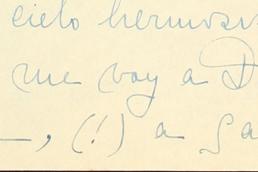 cielo hermos
me voy a D
—, (!) a Sa